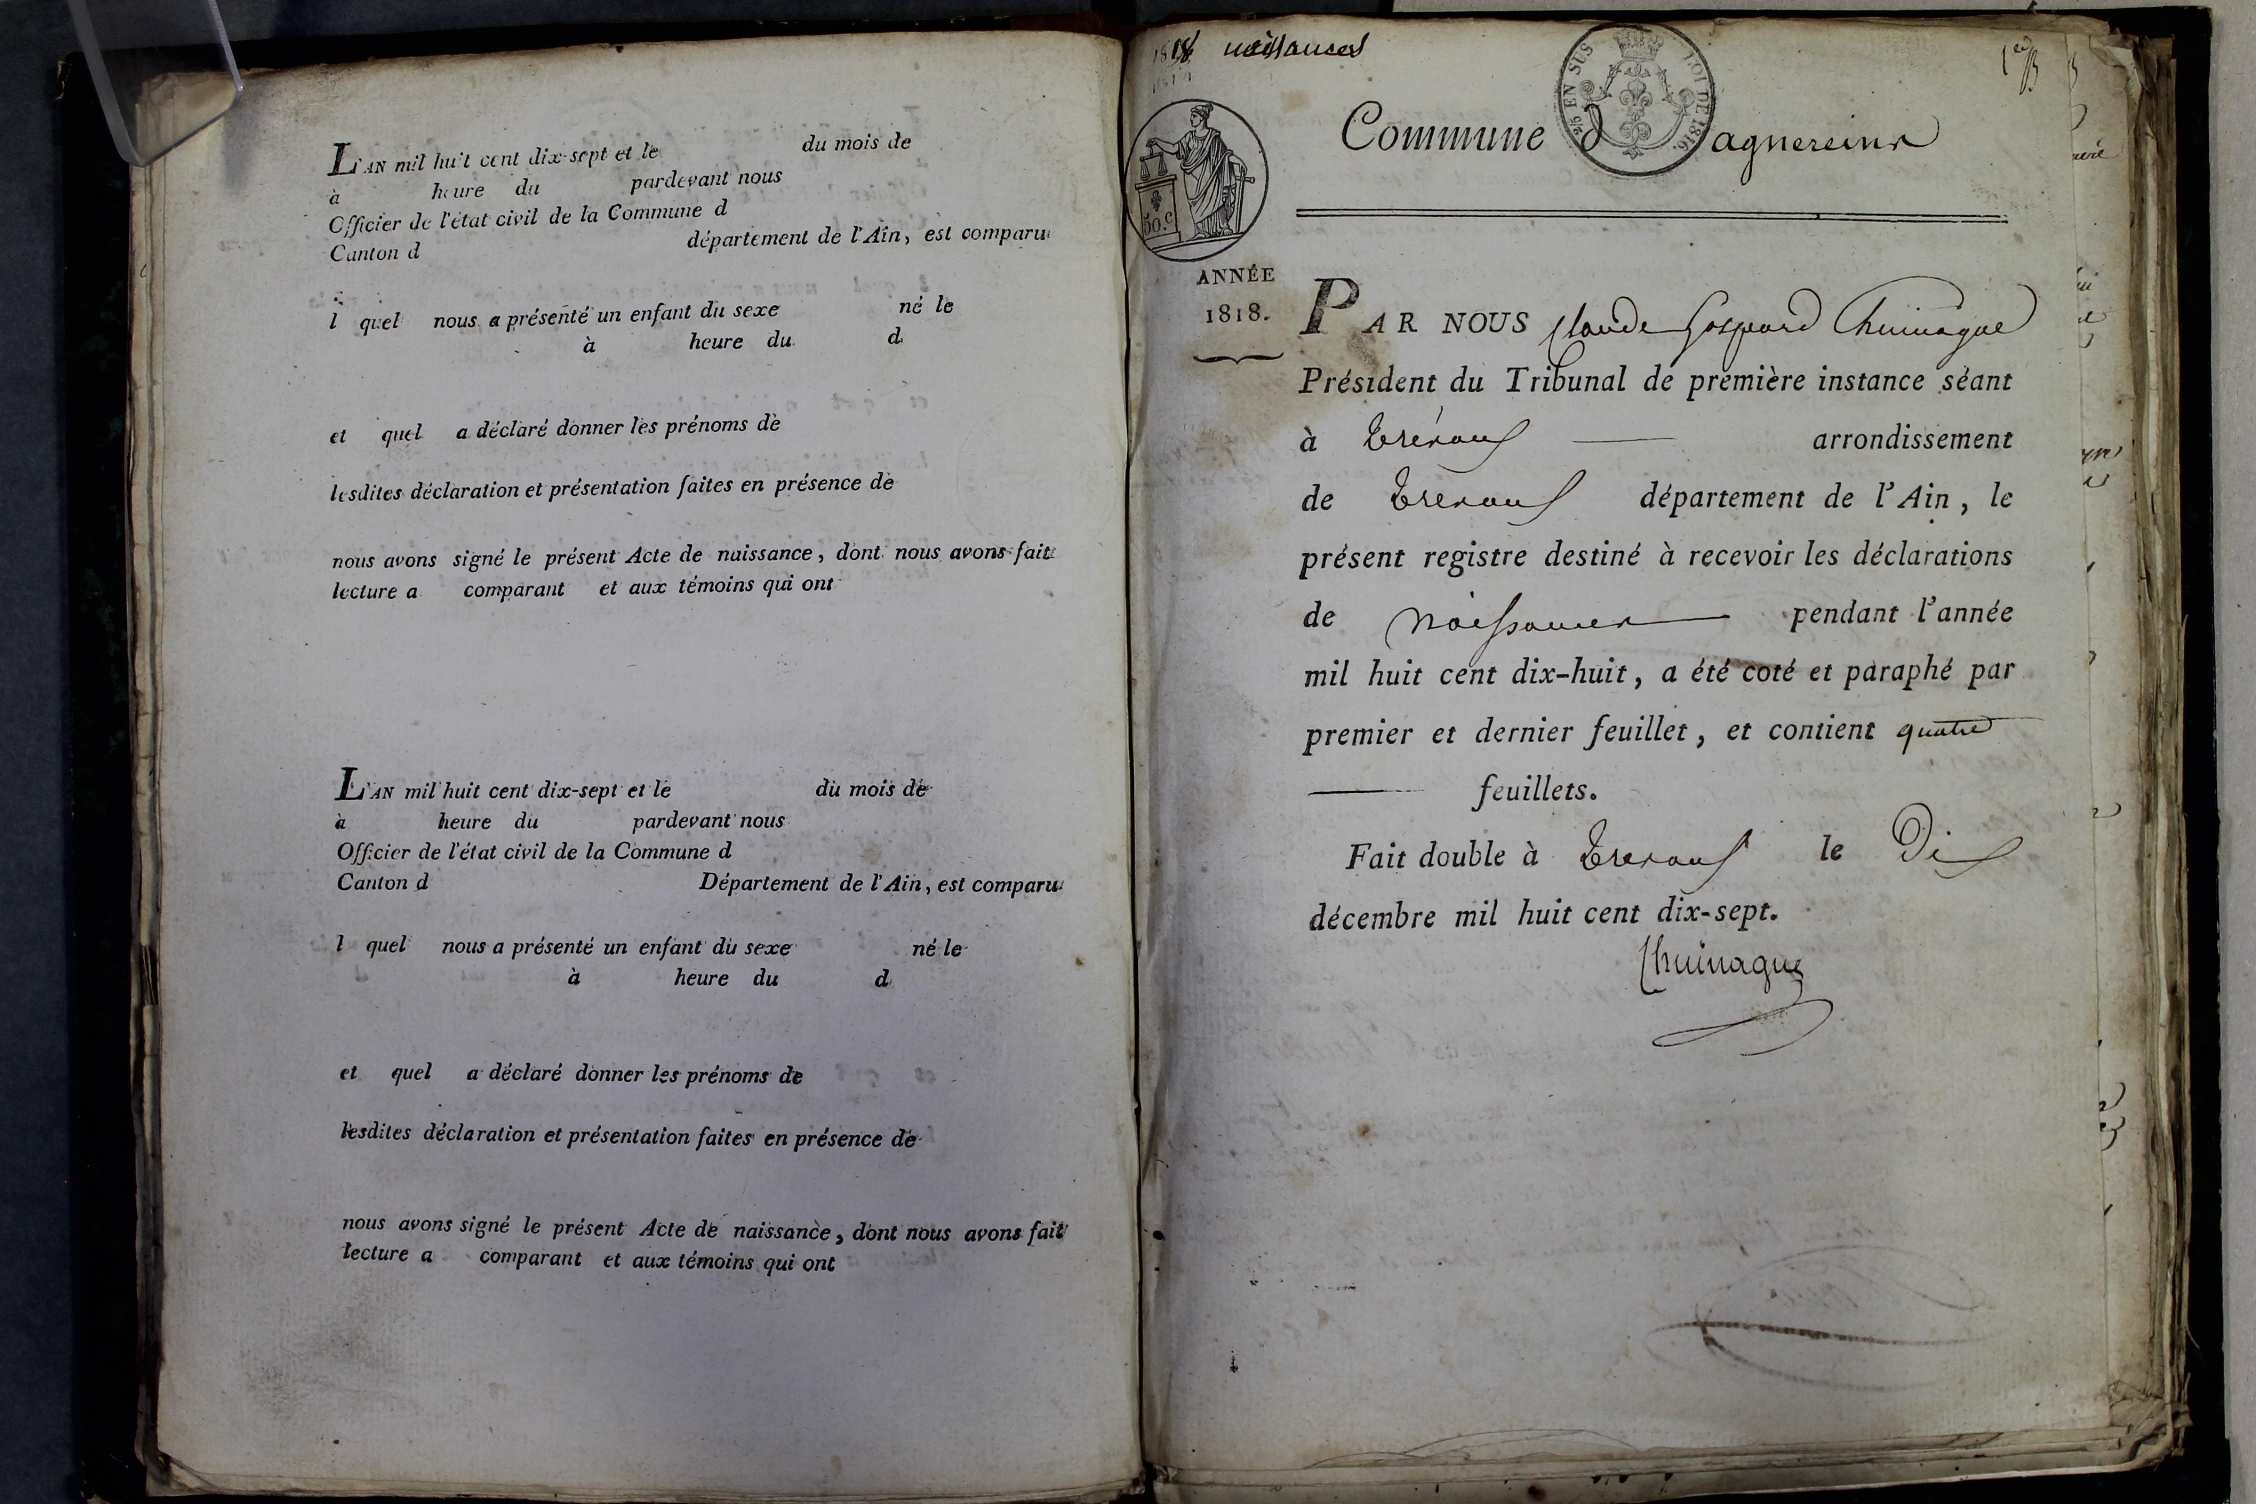 L'AN mil huit cent dix-sept et le du mois de
à heure du pardevant nous
Officier de l'état civil de la Commune d
Canton d département de l'Ain, est comparu
l quel nous a présenté un enfant du sexe né le
à heure du d
et quel a déclaré donner les prénoms de
lesdites déclaration et présentation faites en présence de
nous avons signé le présent Acte de naissance, dont nous avons fait
lecture a comparant et aux témoins qui ont
L'AN mil huit cent dix-sept et le du mois de
à heure du pardevant nous
Officier de l'état civil de la Commune d
Canton d Département de l'Ain, est comparu
l quel nous a présenté un enfant du sexe né le
à heure du d
et quel a déclaré donner les prénoms de
lesdites déclaration et présentation faites en présence de
nous avons signé le présent Acte de naissance, dont nous avons fait
lecture a comparant et aux témoins qui ont
1818 naissances
2/5 EN SUS LOI DE 1816.
Commune d agnereins
50.c
ANNÉE
1818.
PAR NOUS Claude Gaspard Chuinague
Président du Tribunal de première instance séant
à Trévoux arrondissement
de Trevoux département de l'Ain, le
présent registre destiné à recevoir les déclarations
de Naissances pendant l'année
mil huit cent dix-huit, a été coté et paraphé par
premier et dernier feuillet, et contient quatre
feuillets.
Fait double à Trevoux le Dix
décembre mil huit cent dix-sept.
Chuinague